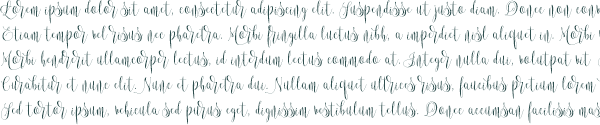 Lorem ipsum dolor sit amet, consectetur adipiscing elit. Suspendisse ut justo diam. Donec non con
Etiam tempor vel risus nec pharetra. Morbi fringilla luctus nibh, a imperdiet nisl aliquet in. Morbi
Morbi hendrerit ullamcorper lectus, id interdum lectus commodo at. Integer nulla dui, volutpat vit
Curabitur et nunc elit. Nunc et pharetra dui. Nullam aliquet ultrices risus, faucibus pretium lorem
Sed tortor ipsum, vehicula sed purus eget, dignissim vestibulum tellus. Donec accumsan facilisis mas